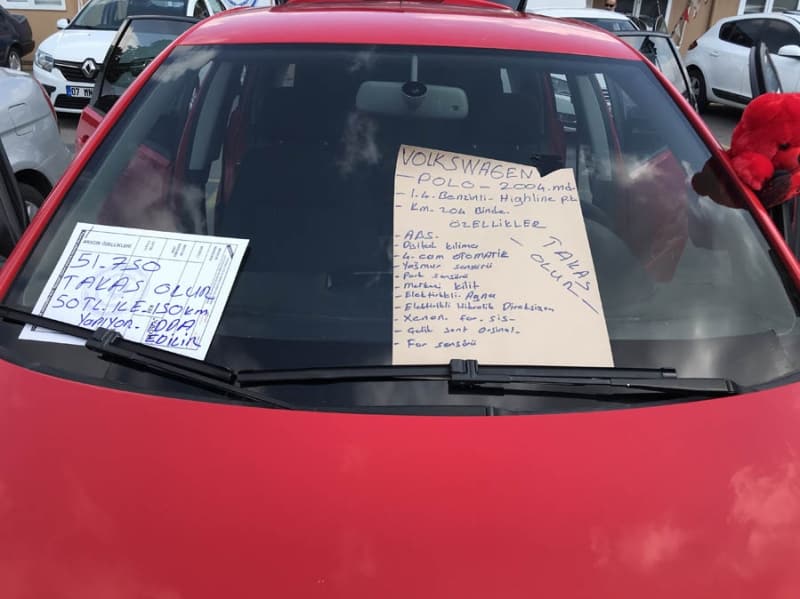 ARACIN ÖZELLİKLERİ
51-750
TAKAS OLUR
50 TL. İLE 150 KM
YAPIYOR. İDDA
EDİLİR
VOLKSWAGEN
- POLO - 2004. md.
- 1.4. Benzinli - Highline pk
- Km. 204 Binde.
ÖZELLİKLER
- ABS.
- Dijital klima
- 4. cam OTOMATİK
- Yağmur sensörü
- Park sensörü
- merkezi kilit
- Elektirikli. Ayna
- Elektirikli Hidrolik Direksiyon
- Xenon. far. sis-
- Çelik Jant Orjinal-
- Far sensörü
- TAKAS
OLUR -
07